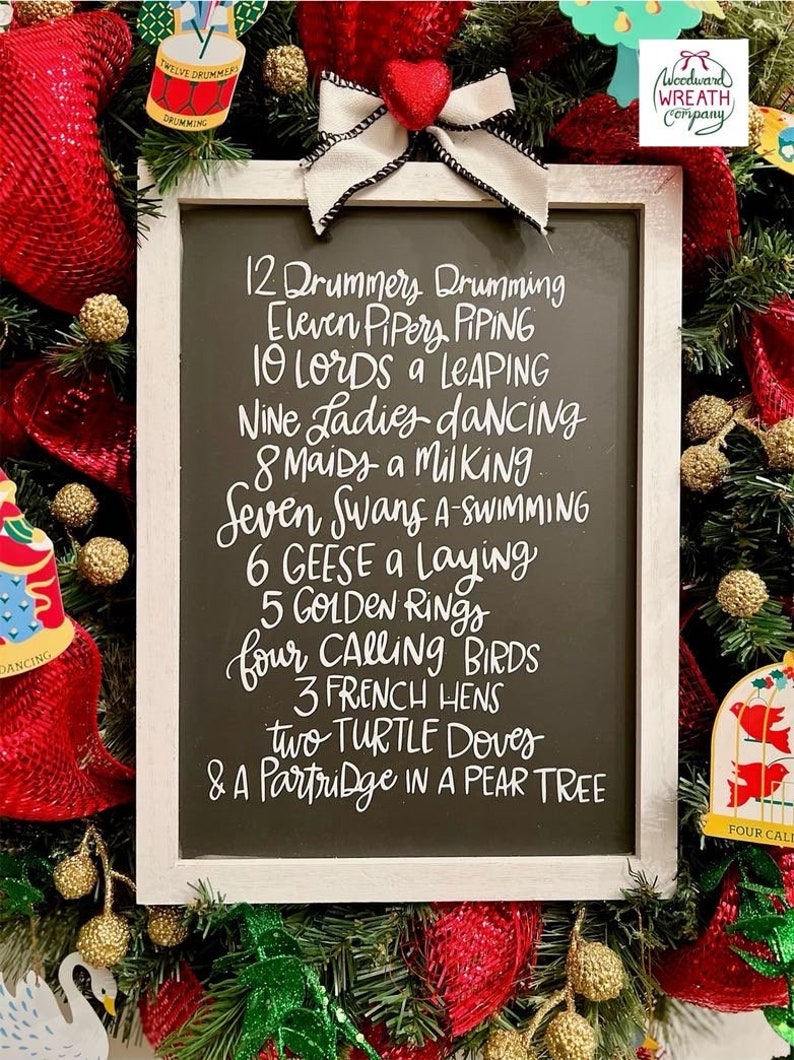 TWELVE DRUMMERS
DRUMMING
Woodward
WREATH
Company
12 Drummers Drumming
Eleven PiPers PiPING
10 LORDS a LEAPING
NiNe Ladies dANCING
8 MAiDs a MilKING
Seven Swans A-SWIMMING
6 GEESE a Laying
5 GOLDEN RiNgs
four CALLiNG BiRDS
3 FRENCH HENS
two TURTLE Doves
& A PartriDge IN A PEAR TREE
DANCING
FOUR CALLI